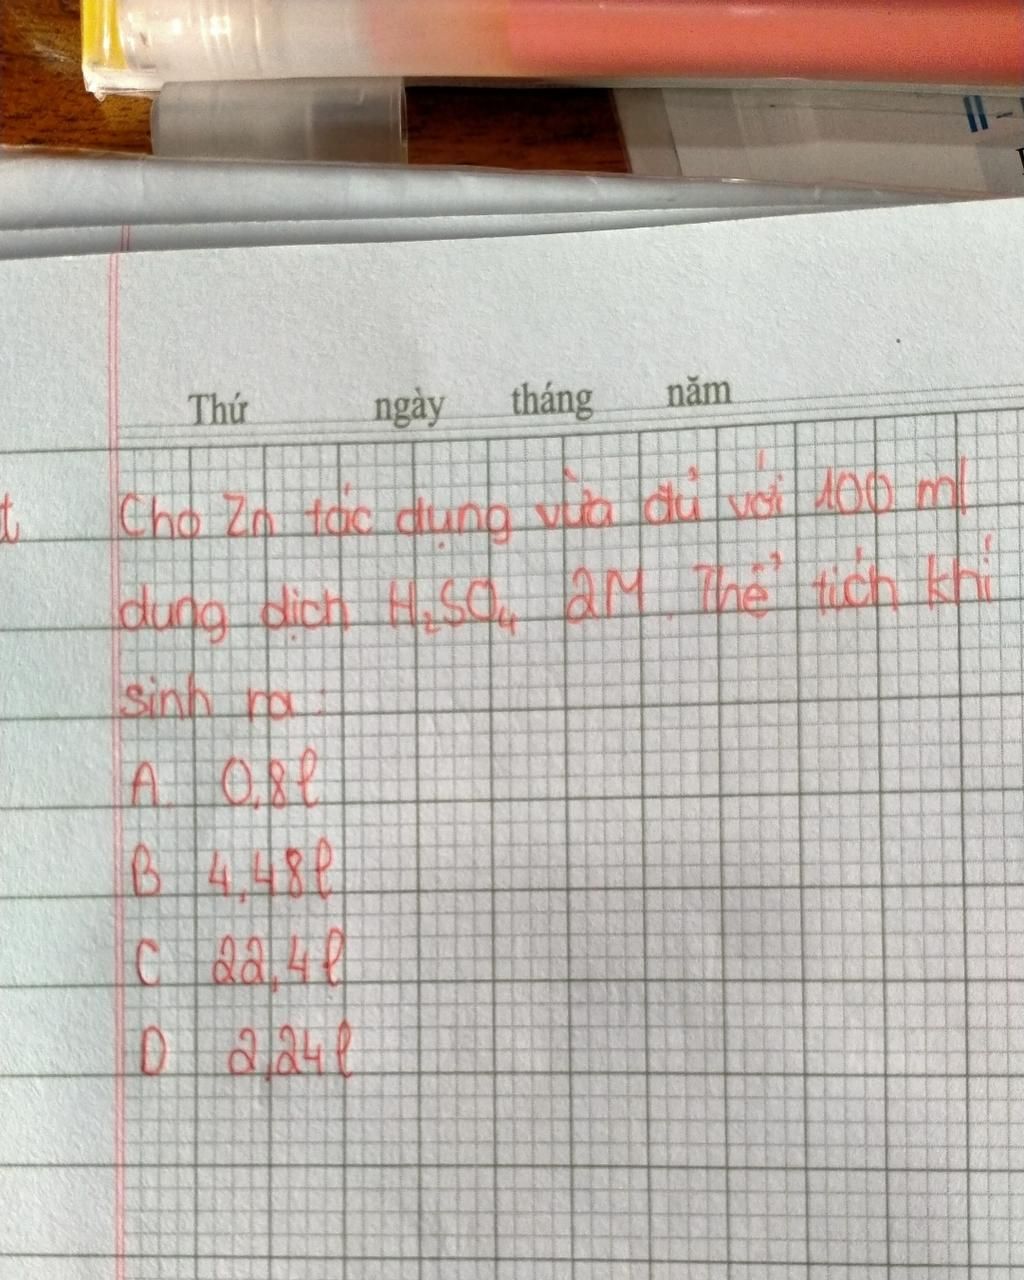 Thứ ngày tháng năm
Cho Zn tác dụng vừa đủ với 100 ml
dung dịch H₂SO₄ 2M. Thể tích khí
sinh ra:
A. 0,8l
B 4,48l
C 22,4l
D 2,24l